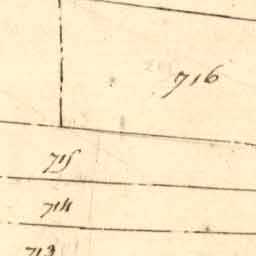 716
715
714
713